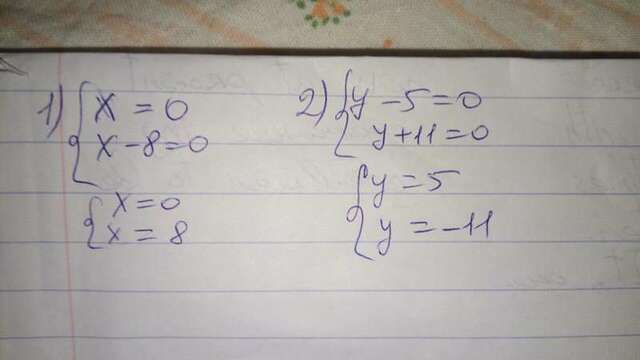 1) { x = 0
x - 8 = 0
{ x = 0
x = 8
2) { y - 5 = 0
y + 11 = 0
{ y = 5
y = -11